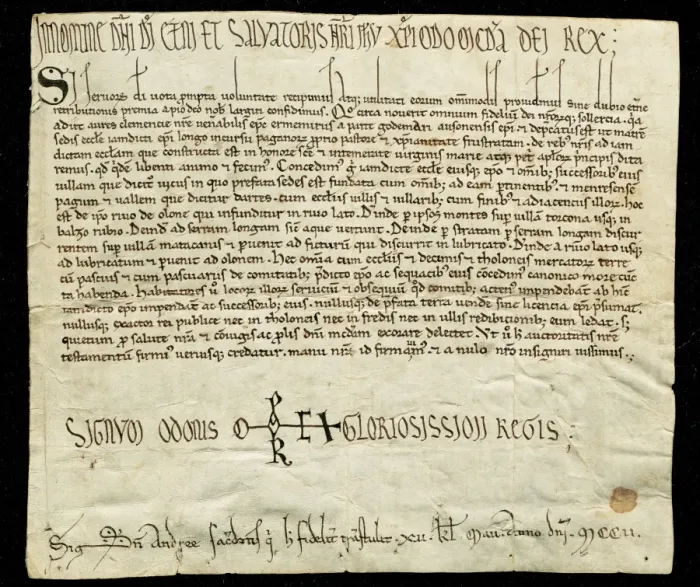 In nomine dñi di eterni et salvatoris nr̃i ihu xp̃i odo mcdia dei rex;
Si servorũ di vota prompta voluntate recipimus atq; utilitati eorum ommodũ providemus sine dubio etñe
retributionis premia a pio deo nob largiri confidimus. Quo circa noverit omnium fidelium dei nr̃orq; sollercia. q̃a
adiit aures clemencie nr̃e venerabilis ep̃c ermemirus a parte godemari ausonensis ep̃i & dep̃catus est ut matrẽ
sedis eccle iamdicti ep̃i longo incursu paganorũ proprio pastore & xp̃ianitate frustratam. de reb; nr̃is ad iam
dictam ecclam que constructa est in honore scẽ & intemerate virginis marie atq; petri aplorũ principis dita
remus. qd q̃de libenti animo & fecim'. Concedim' g̃ iamdicte eccle eiusq; epo & omib; successorib; eius
villam que dicit' vicus in quo prefata sedes est fundata cum omib; ad eam p̃tinentib;. & mentesense
pagum & vallem que dicitur dartes. cum ecclĩis villis & villarib; cum finib; & adiacenciis illorũ. hoc
est de ip̃o rivo de olone qui infunditur in rivo lato. Dinde p ipsos montes sup villã torcona usq; in
balzo rubio. Deind ad serram longam sic̃ aque vertunt. Deinde p stratam p serram longam discur
rentem sup villam matacarus & p̃venit ad ficturũ qui discurrit in lubricato. Dinde a rivo lato usq;
ad lubricatum & p̃venit ad olonem. Hec omĩa cum ecclĩis & decimis & tholoneis mercatorũ terre
cũ pascuis & cum pascuariis de comitatib; p̃dicto epo ac sequacib; eius cõcedim' canonico more cũc
ta habenda. Habitatores ũ locorũ illorũ serviciũ & obsequiũ qd comitib; acten' impendebãt ab hinc
iamdicto epo impendãt ac successorib; eius. nullusq; de p̃fata terra vende sine licencia epi p̃sumat.
nullusq; exactor rei publice nec in tholoneis nec in fredis nec in ullis redibicionib; eum ledat. s;
quietum p salute nr̃a & coniugis ac prolis dnm mcdum exorare delectet. Ut ũ h auctoritatis nr̃e
testamentũ firmi' veriusq; credatur. manu nr̃a id firmam'. & anulo nr̃o insigniri iussimus.
Signum odonis gloriosissimi regis;
Sig+num Andree sacerdotis q̃ h fidelit̃ trãstulit. xv. kl. Mai. anno dñi. Mccii.